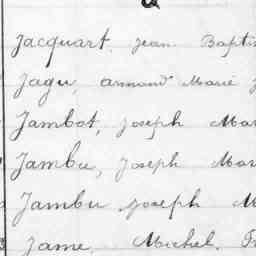 Jacquart, Jean Baptis
Jagu, Armand Marie J
Jambot, Joseph Mar
Jambu, Joseph Mar
Jambu Joseph M
Jame, Michel, Fr